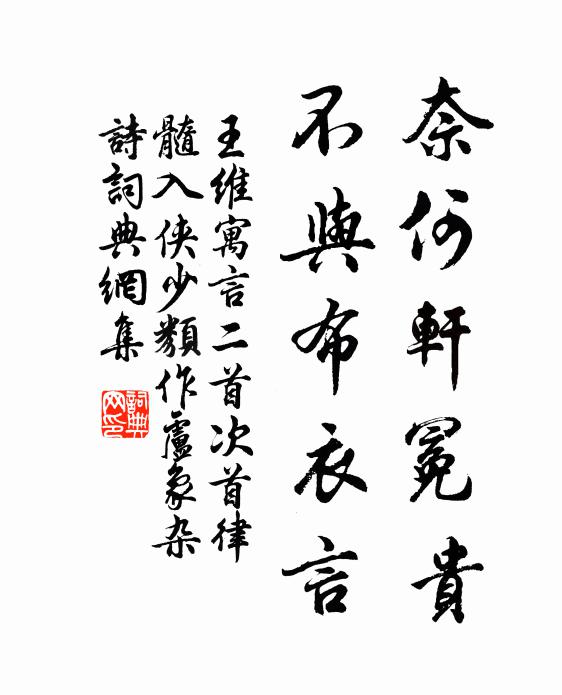 奈何軒冕貴
不與布衣言
王維寓言二首次首律
髓入俠少類作盧象杂
詩詞典網集
詞典网印